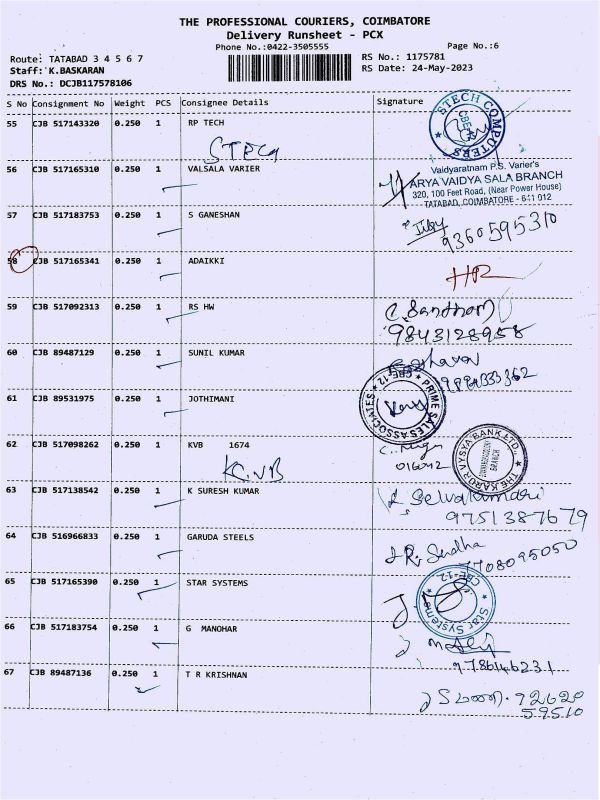 THE PROFESSIONAL COURIERS, COIMBATORE
Delivery Runsheet - PCX
Phone No.:0422-3505555
Page No.:6
Route: TATABAD 3 4 5 6 7
RS No.: 1175781
Staff: K.BASKARAN
RS Date: 24-May-2023
DRS No.: DCJB117578106
S No Consignment No Weight PCS Consignee Details Signature
55 CJB 517143320 0.250 1 RP TECH
STECH
STECH COMPUTERS
CBE
56 CJB 517165310 0.250 1 VALSALA VARIER
Vaidyaratnam P.S. Varier's
ARYA VAIDYA SALA BRANCH
320, 100 Feet Road, (Near Power House)
TATABAD, COIMBATORE - 641 012
57 CJB 517183753 0.250 1 S GANESHAN
9360595310
58 CJB 517165341 0.250 1 ADAIKKI
HR
59 CJB 517092313 0.250 1 RS HW
9843128958
60 CJB 89487129 0.250 1 SUNIL KUMAR
61 CJB 89531975 0.250 1 JOTHIMANI
PRIME SALES ASSOCIATES
CBE-12
62 CJB 517098262 0.250 1 KVB 1674
K.VB
THE KARUR VYSYA BANK LTD.,
BRANCH
63 CJB 517138542 0.250 1 K SURESH KUMAR
Selvakumari
9751387679
64 CJB 516966833 0.250 1 GARUDA STEELS
Sudha
7708095050
65 CJB 517165390 0.250 1 STAR SYSTEMS
Star Systems
CBE-12
66 CJB 517183754 0.250 1 G MANOHAR
9786146231
67 CJB 89487136 0.250 1 T R KRISHNAN
92620
59510